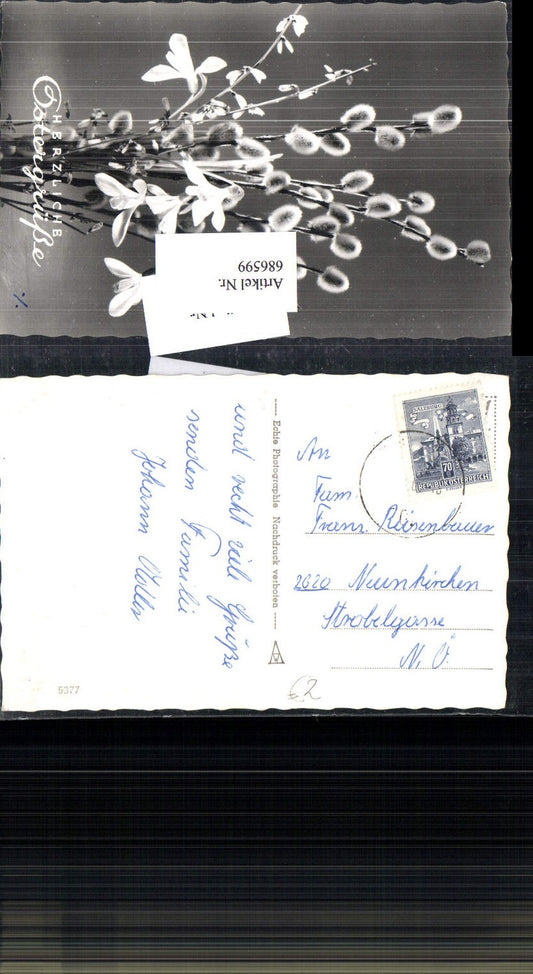 HERZLICHE
Ostergrüße
Artikel Nr.
686599
und recht viele Grüße
senden Familie
Johann
Echte Photographie Nachdruck verboten
SALZBURG
70
REPUBLIK ÖSTERREICH
An
Fam.
Franz Reisenbauer
2620 Neunkirchen
Strobelgasse
N. Ö.
5377
€2